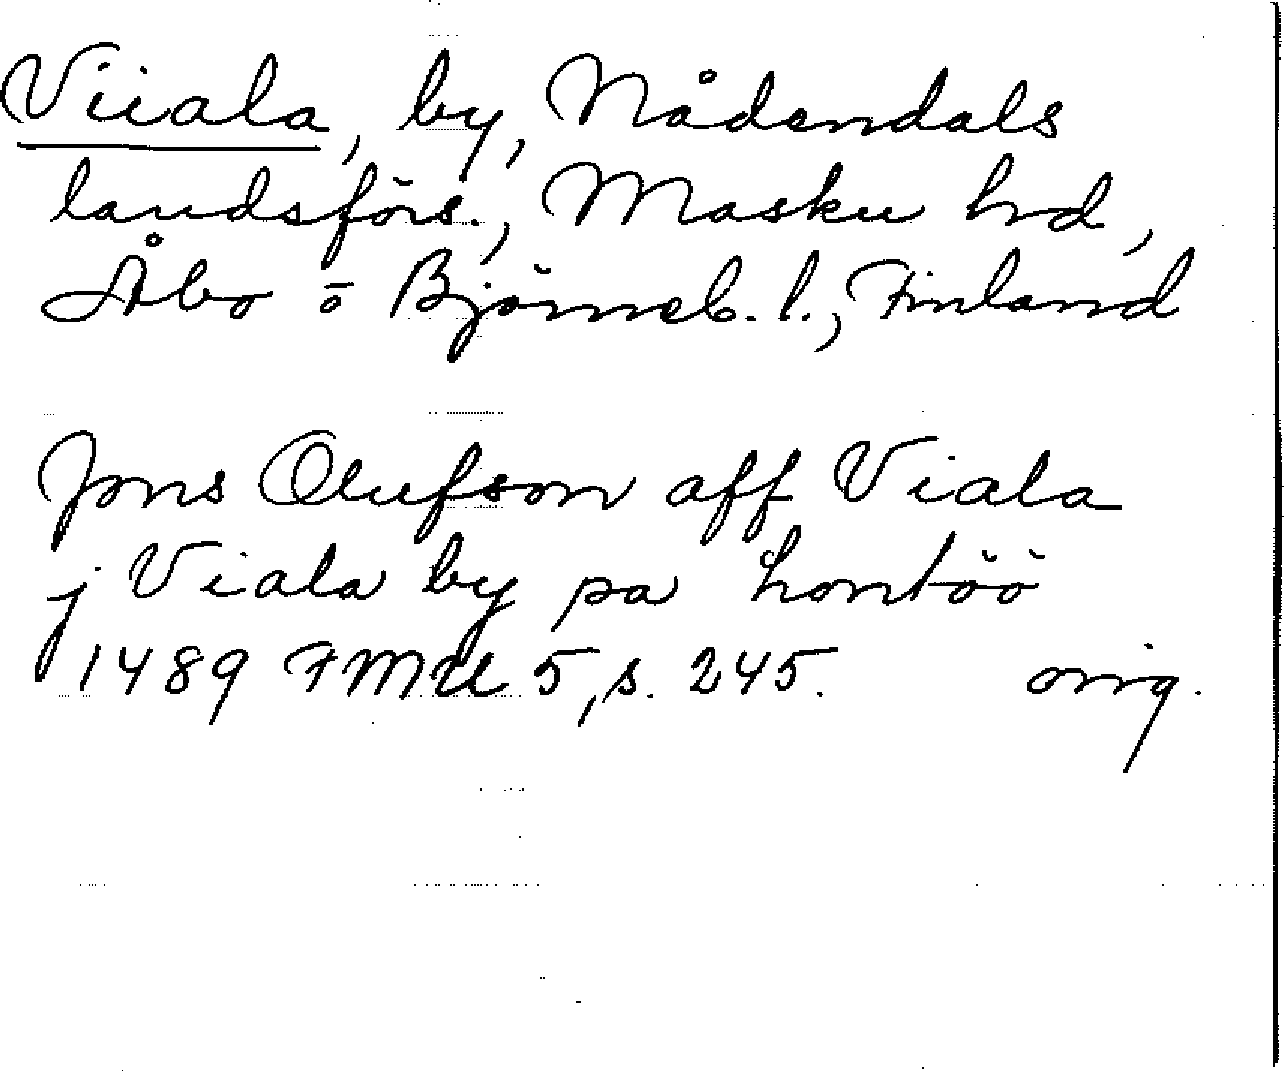 Viiala, by, Nådendals
landsförs., Masku hrd,
Åbo o Björneb. l., Finland
Jons Olufson aff Viala
j Viala by pa hontöö
1489 FMU 5, s. 245. orig.